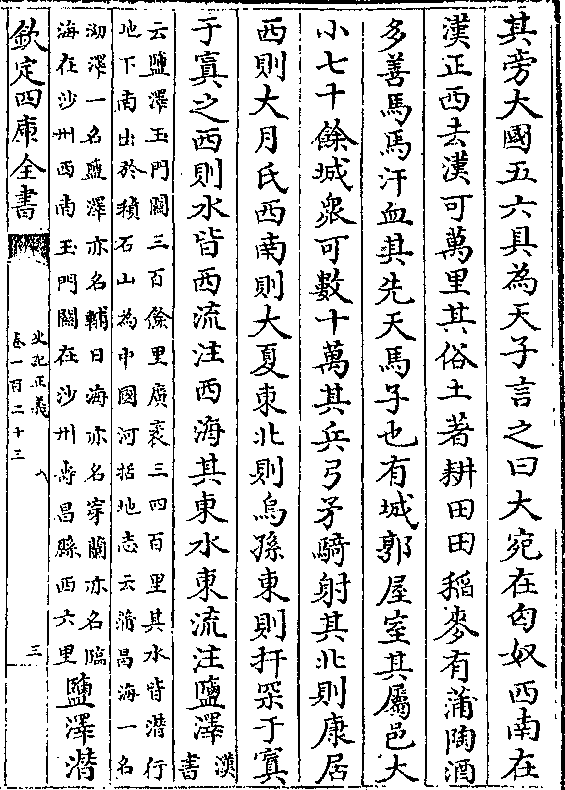 其旁大國五六具為天子言之曰大宛在匈奴西南在
漢正西去漢可萬里其俗土著耕田田稻麥有蒲陶酒
多善馬馬汗血其先天馬子也有城郭屋室其屬邑大
小七十餘城衆可數十萬其兵弓矛騎射其北則康居
西則大月氏西南則大夏東北則烏孫東則扜罙于窴
于窴之西則水皆西流注西海其東水東流注鹽澤
漢書
云鹽澤玉門關三百餘里廣袤三四百里其水皆潛行
地下南出於積石山為中國河括地志云蒲昌海一名
泑澤一名鹽澤亦名輔日海亦名穿蘭亦名臨
海在沙州西南玉門關在沙州壽昌縣西六里
鹽澤潛
欽定四庫全書
史記正義
卷一百二十三
三